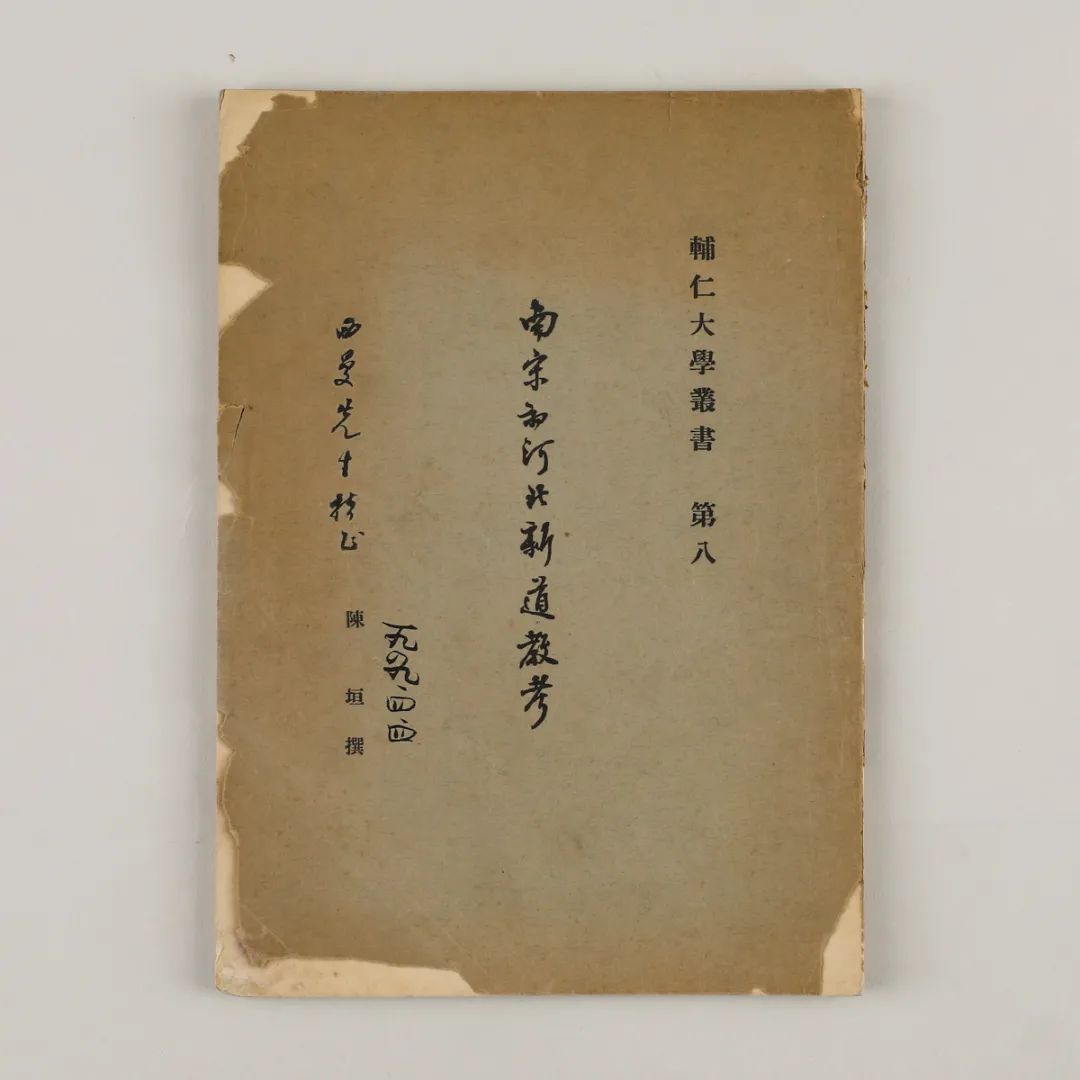 輔仁大學叢書 第八
南宋初河北新道教考
一九四九·四·四
西曼先生指正
陳垣撰